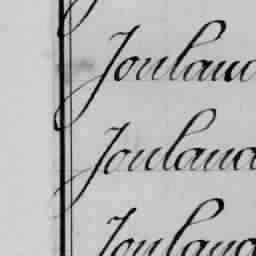 Joulaud
Joulaud
Joulaud